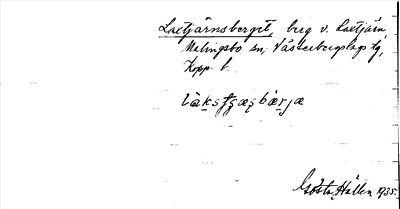 Laxtjärnsberget, berg v. Laxtjärn,
Malingsbo sn, Västerbergslags dg,
Kopp. l.
Gösta Hallen 1935.